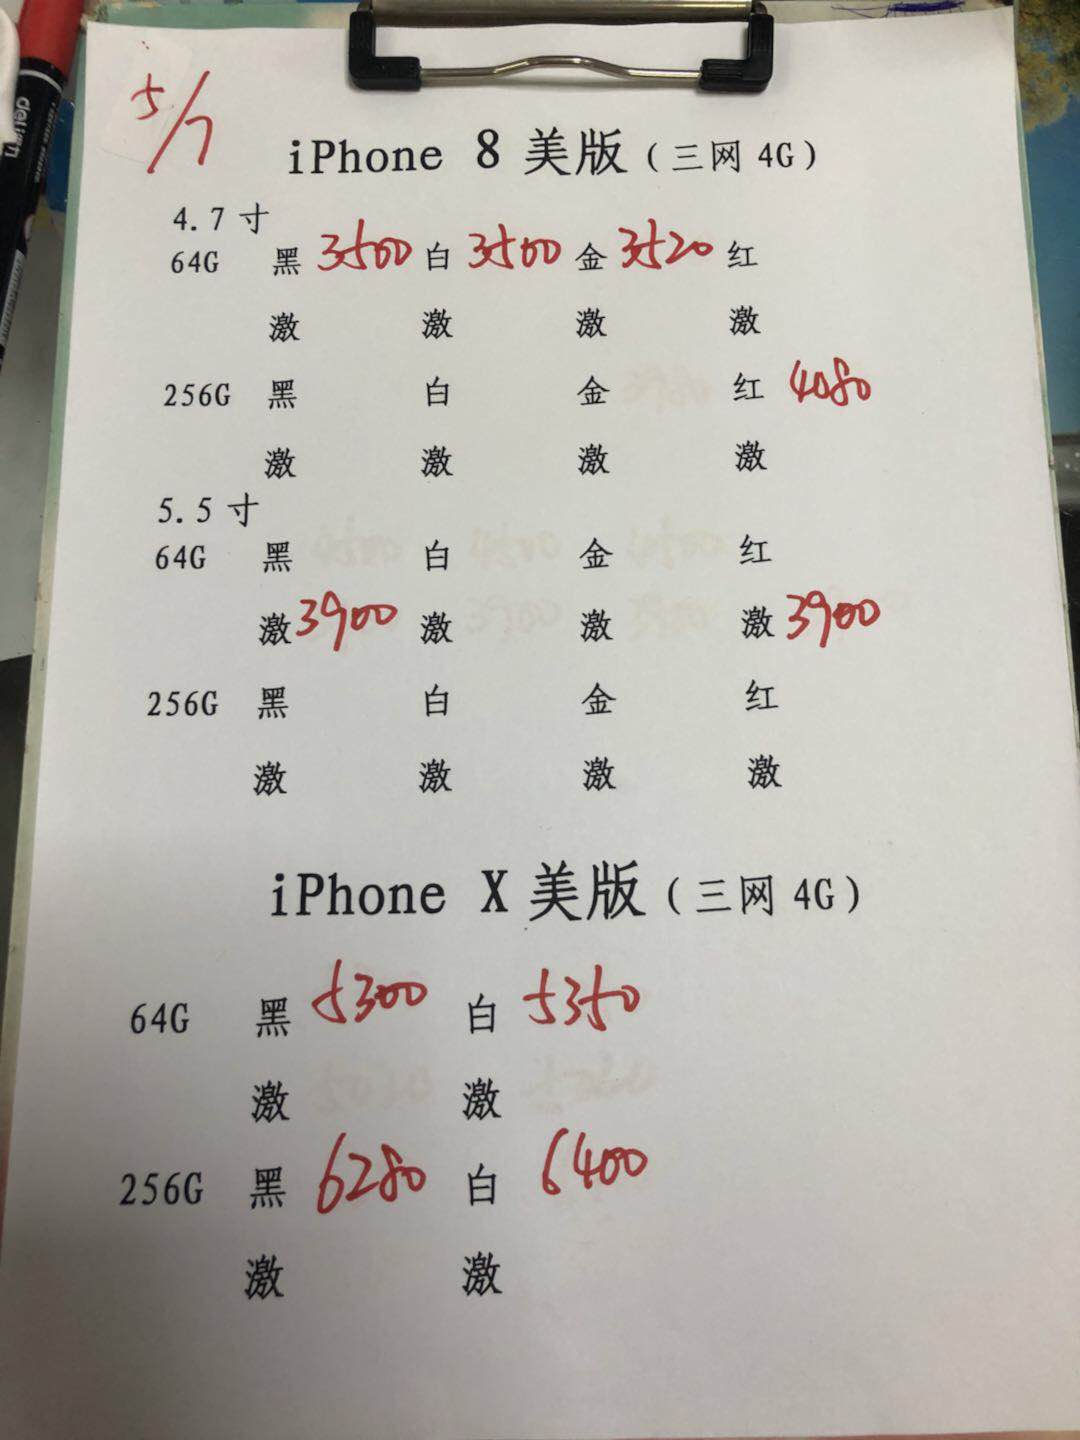 5/7
iPhone 8 美版(三网4G)
4.7寸
64G 黑 3500 白 3500 金 3520 红
激 激 激 激
256G 黑 白 金 红 4080
激 激 激 激
5.5寸
64G 黑 白 金 红
激 3900 激 激 激 3900
256G 黑 白 金 红
激 激 激 激
iPhone X 美版(三网4G)
64G 黑 5300 白 5350
激 激
256G 黑 6280 白 6400
激 激
deli